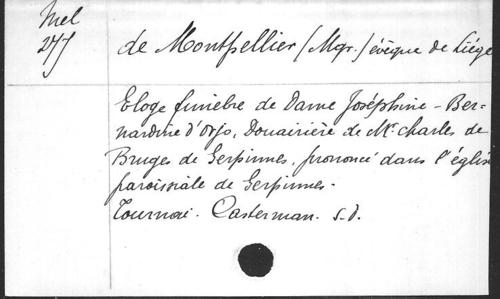 Mel
277
de Montpellier (Mgr.) évêque de Liége
Eloge funèbre de Dame Joséphine-Ber-
nardine d'Orjo, Douairière de Mr. Charles de
Bruges de Gerpinnes, prononcé dans l'église
paroissiale de Gerpinnes.
Tournai. Casterman. s.d.